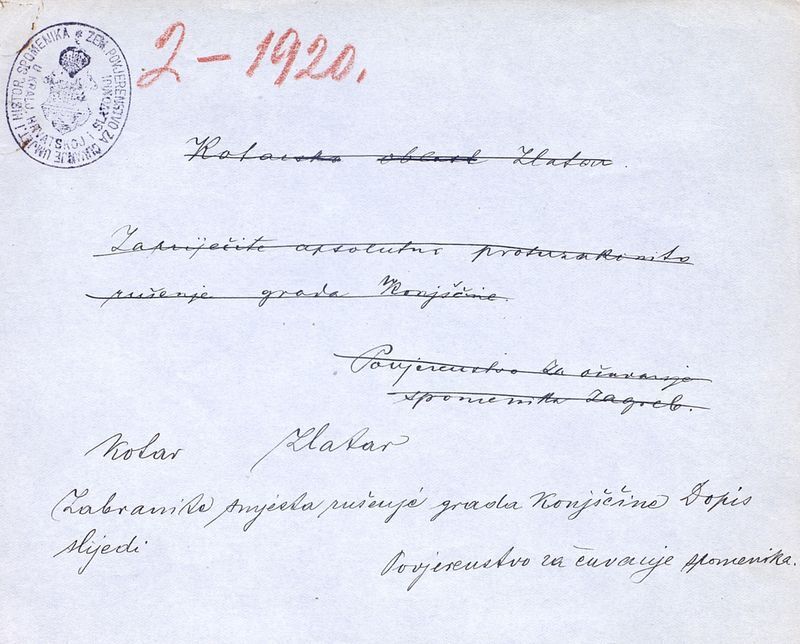 ZEM. POVJERENSTVO ZA ČUVANJE UMJET. I HISTOR. SPOMENIKA
U KRALJ. HRVATSKOJ I
2 – 1920.
Kotarska oblast Zlatar.
Zapriječite apsolutno protuzakonito
rušenje grada Konjščine.
Povjerenstvo za očuvanje
spomenika Zagreb.
Kotar Zlatar
Zabranite smjesta rušenje grada Konjščine Dopis
slijedi
Povjerenstvo za čuvanje spomenika.